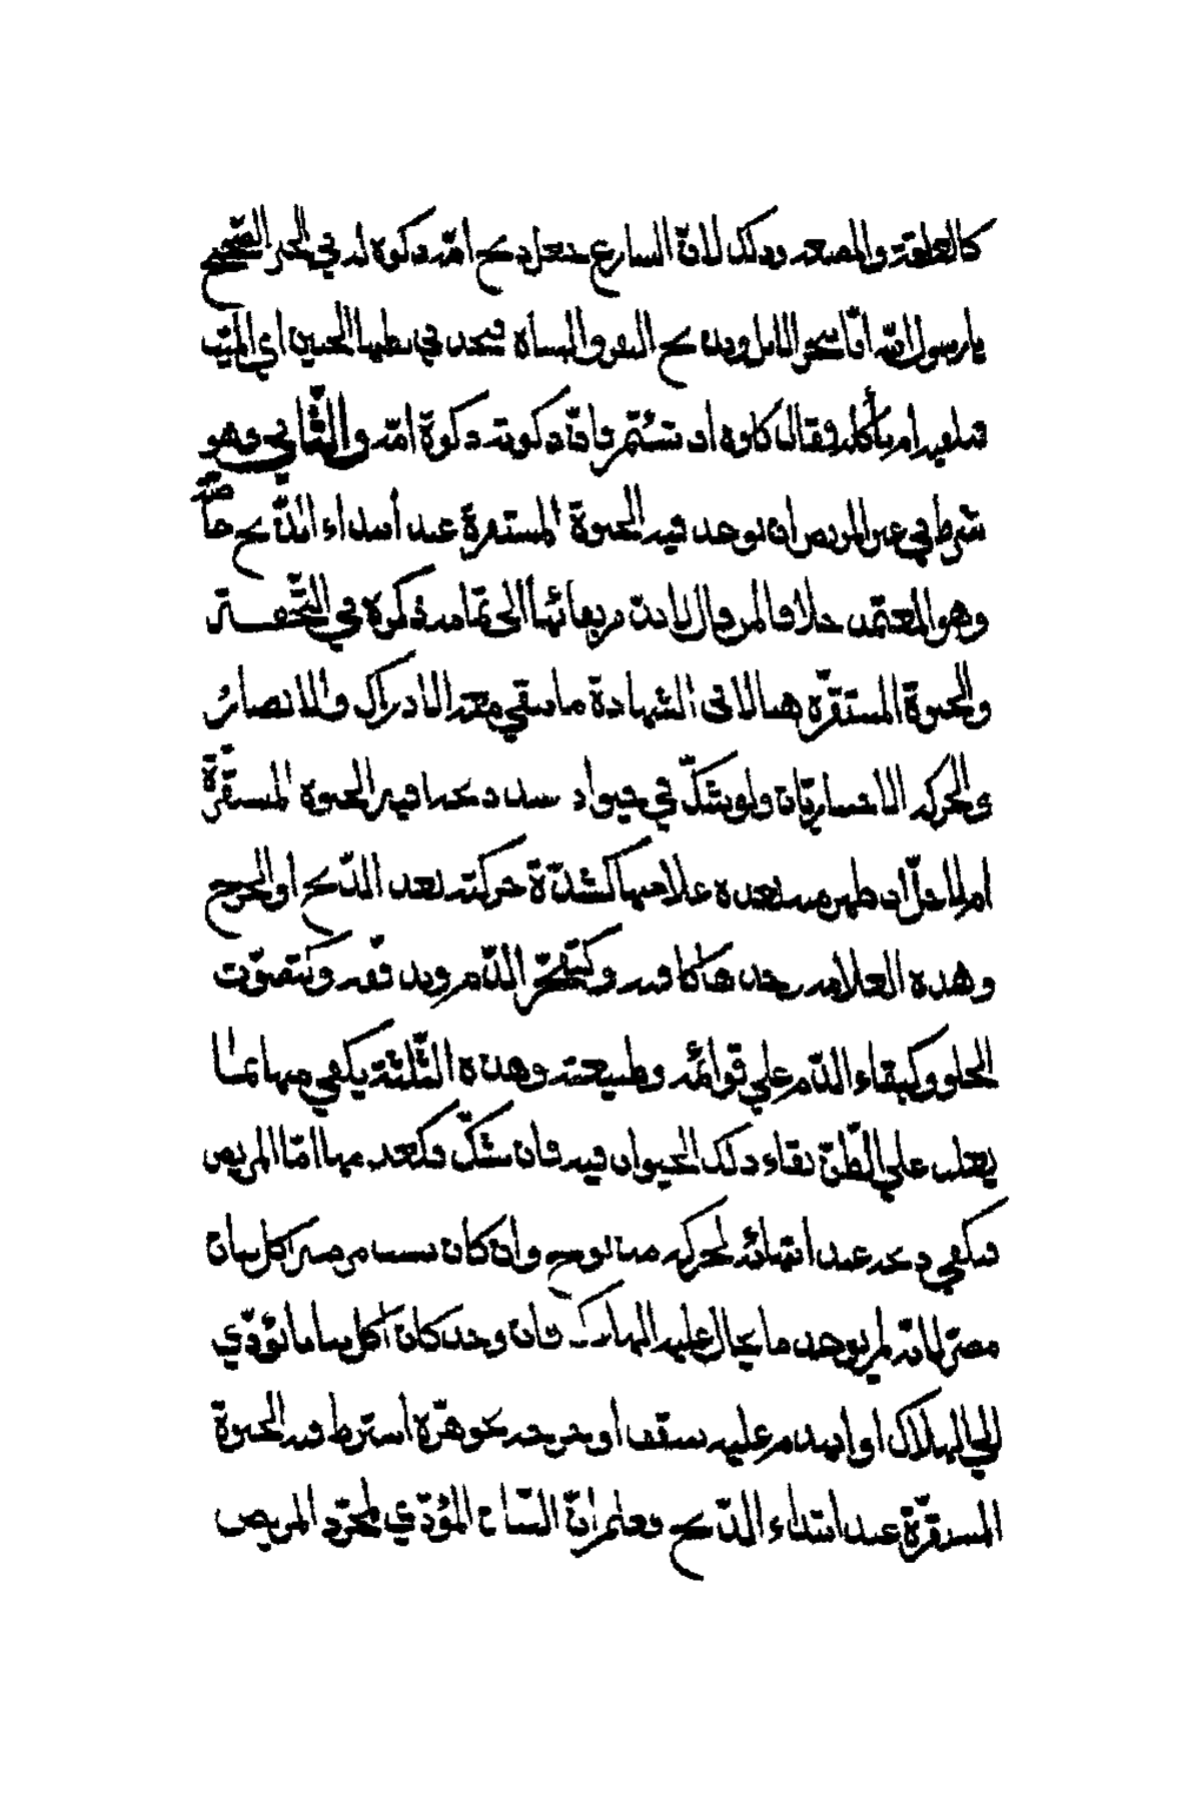 كالعلقة والمضغة وذلك لان الشارع جعل ذبح امه ذكوة له في الخبر الصحيح
يا رسول الله انا ننحر الابل ونذبح البقر والشاة فنجد في بطنها الجنين اي الميت
فنلقيه ام نأكله فقال كلوه ان شئتم فان ذكوته ذكوة امه والثاني وهو
شرط في غير المريض ان يوجد فيه الحيوة المستقرة عند أبتداء الذبح خاصّة
وهو المعتمد خلافا لمن قال لا بد من بقائها الى تمامه ذكره في التحفة
والحيوة المستقرّة هنا لا في الشهادة ما يبقي معه الادراك والابصار
والحركة الاختياريّان ولو شكّ في حيوان عند ذبحه افيه الحيوة المستقرّة
ام لا حلّ ان ظهر منه بعده علامتها كشدّة حركته بعد الذبح او الجرح
وهذه العلامة وحدها كافية وكتفجّر الدّم وتدفّقه وكتصوّت
الحلق وكبقاء الدّم علي قوامه وطبيعته وهذه الثلثة يكفي منها ما
يغلب علي الظّنّ بقاء ذلك الحيوان فيه فان شكّ فكعدمها امّا المريض
فيكفي ذبحه عند انتهائه لحركة مذبوح وان كان سبب مرضه اكل نبات
مضرّ لانه لم يوجد ما يحال عليه الهلاك فان وجد كان أكل نباتا يؤدّي
الي الهلاك او انهدم عليه سقف او جرحه نحو هرّة أشترط فيه الحيوة
المستقرّة عند ابتداء الذّبح فعلم انّ النبات المؤدّي لمجرّد المريض